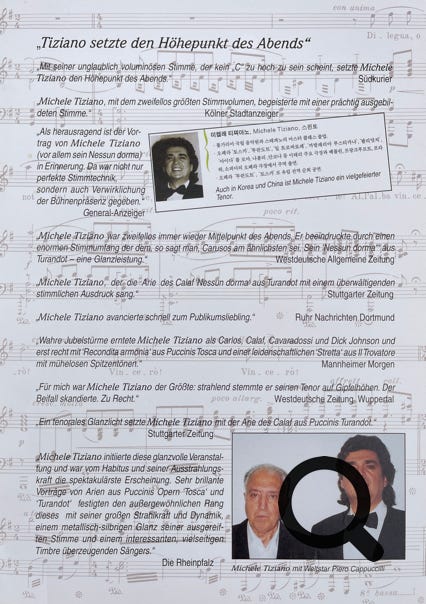 „Tiziano setzte den Höhepunkt des Abends“
„Mit seiner unglaublich voluminösen Stimme, der kein „C“ zu hoch zu sein scheint, setzte Michele
Tiziano den Höhepunkt des Abends.“ Südkurier
„Michele Tiziano, mit dem zweifellos größten Stimmvolumen, begeisterte mit einer prächtig ausgebil-
deten Stimme.“ Kölner Stadtanzeiger
„Als herausragend ist der Vor-
trag von Michele Tiziano
(vor allem sein Nessun dorma)
in Erinnerung. Da war nicht nur
perfekte Stimmtechnik,
sondern auch Verwirklichung
der Bühnenpräsenz gegeben.“
General-Anzeiger
Michele Tiziano,
Auch in Korea und China ist Michele Tiziano ein vielgefeierter
Tenor.
„Michele Tiziano war zweifellos immer wieder Mittelpunkt des Abends. Er beeindruckte durch einen
enormen Stimmumfang der dem, so sagt man, Carusos am ähnlichsten sei. Sein 'Nessun dorma' aus
Turandot – eine Glanzleistung.“ Westdeutsche Allgemeine Zeitung
„Michele Tiziano, der die Arie des Calaf 'Nessun dorma' aus Turandot mit einem überwältigenden
stimmlichen Ausdruck sang.“ Stuttgarter Zeitung
„Michele Tiziano avancierte schnell zum Publikumsliebling.“ Ruhr Nachrichten Dortmund
„Wahre Jubelstürme erntete Michele Tiziano als Carlos, Calaf, Cavaradossi und Dick Johnson und
erst recht mit 'Recondita armonia' aus Puccinis Tosca und einer leidenschaftlichen 'Stretta' aus Il Trovatore
mit mühelosen Spitzentönen.“ Mannheimer Morgen
„Für mich war Michele Tiziano der Größte: strahlend stemmte er seinen Tenor auf Gipfelhöhen. Der
Beifall skandierte. Zu Recht.“ Westdeutsche Zeitung, Wuppedal
„Ein tenorales Glanzlicht setzte Michele Tiziano mit der Arie des Calaf aus Puccinis Turandot.“
Stuttgarter Zeitung
„Michele Tiziano initiierte diese glanzvolle Veranstal-
tung und war vom Habitus und seiner Ausstrahlungs-
kraft die spektakulärste Erscheinung. Sehr brillante
Vorträge von Arien aus Puccinis Opern 'Tosca' und
'Turandot' festigten den außergewöhnlichen Rang
dieses mit seiner großen Strahlkraft und Dynamik,
einem metallisch-silbrigen Glanz seiner ausgereif-
ten Stimme und einem interessanten, vielseitigen
Timbre überzeugenden Sängers.“
Die Rheinpfalz
Michele Tiziano mit Weltstar Piero Cappuccilli